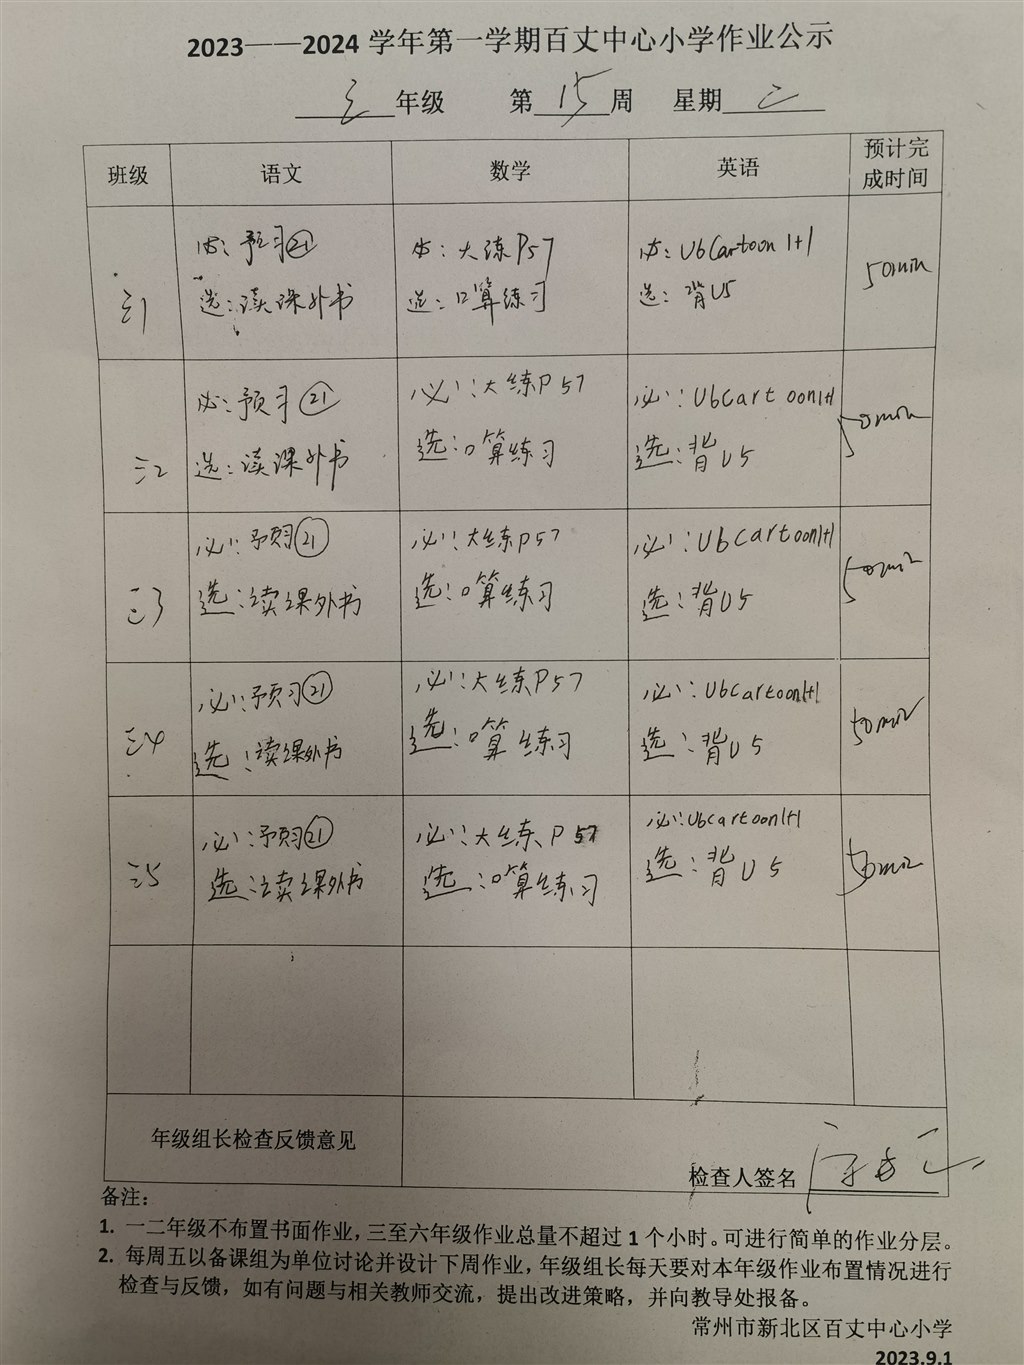 2023——2024 学年第一学期百丈中心小学作业公示
三 年级 第 15 周 星期 二
班级 语文 数学 英语 预计完成时间
三1
必：预习㉑
选：读课外书
必：大练P57
选：口算练习
必：U6Cartoon 1+1
选：背U5
50min
三2
必：预习㉑
选：读课外书
必：大练P57
选：口算练习
必：U6Cartoon1+1
选：背U5
50min
三3
必：预习㉑
选：读课外书
必：大练P57
选：口算练习
必：U6Cartoon1+1
选：背U5
50min
三4
必：预习㉑
选：读课外书
必：大练P57
选：口算练习
必：U6Cartoon1+1
选：背U5
50min
三5
必：预习㉑
选：读课外书
必：大练P57
选：口算练习
必：U6cartoon1+1
选：背U5
50min
年级组长检查反馈意见
检查人签名
备注：
1. 一二年级不布置书面作业，三至六年级作业总量不超过 1 个小时。可进行简单的作业分层。
2. 每周五以备课组为单位讨论并设计下周作业，年级组长每天要对本年级作业布置情况进行
检查与反馈，如有问题与相关教师交流，提出改进策略，并向教导处报备。
常州市新北区百丈中心小学
2023.9.1